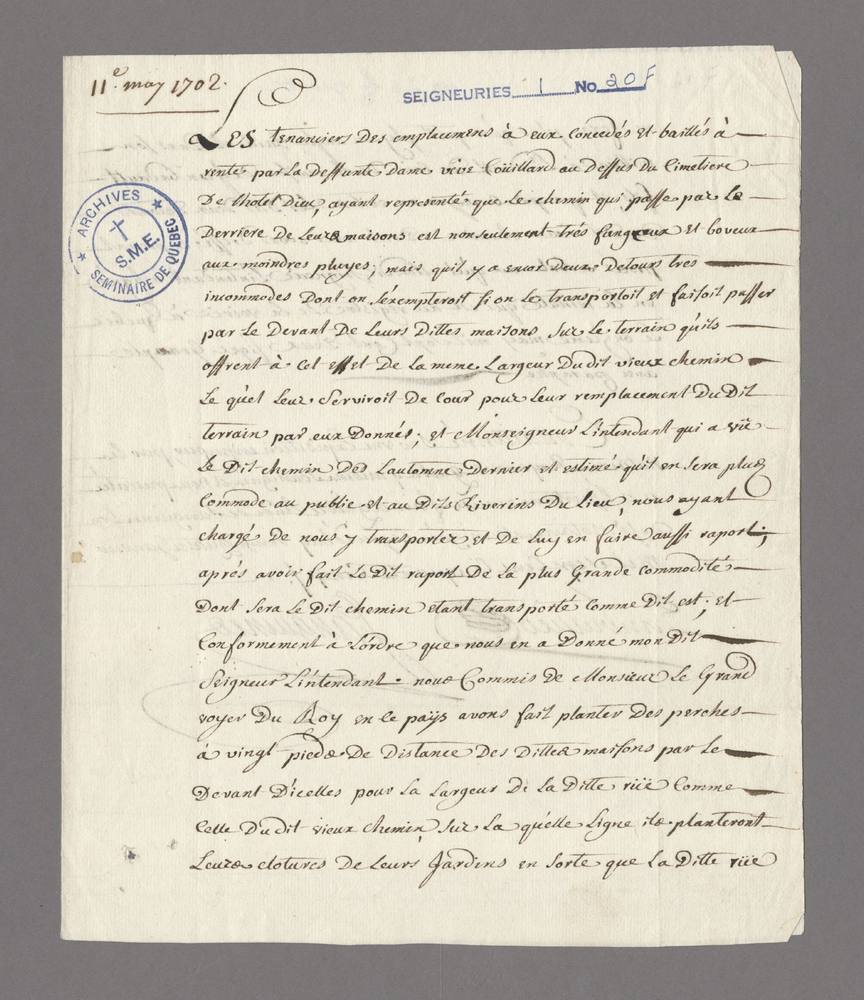 11e. may 1702.
SEIGNEURIES 1 No 20 F
ARCHIVES
S.M.E.
SEMINAIRE DE QUEBEC
Les tenanciers Des emplacemens à eux Concedés et baillés à
rente par La Deffunte Dame vëve Coüillard au Dessus Du Cimetiere
De Lhotel Dieu, ayant representé que Le chemin qui passe par Le
Derriere De Leurs maisons est non seulement trés fangeux et boveux
aux moindres pluyes, mais quil y a encor Deux Detours tres
incommodes Dont on Séxempteroit si on Le transportoit et faisoit passer
par Le Devant De Leurs Dittes maisons sur Le terrain qu'ils
offrent à Cet effet De La meme Largeur Dudit vieux chemin
Le quel Leur Serviroit De Cour pour Leur remplacement Du Dit
terrain par eux Donnés; et Monseigneur Lintendant qui a vëu
Le Dit chemin Des Lautomne Dernier et estimé qu'il en Sera plus
Commode au public et au Dits Riverins Du Lieu, nous ayant
chargé De nous y transporter et De Luy en faire aussi raport;
aprés avoir fait Le Dit raport De La plus Grande Commodité
Dont Sera Le Dit chemin etant transporté Comme Dit est; et
Conformement à Lórdre que nous en a Donné mon Dit
Seigneur Lintendant. nous Commis De Monsieur Le Grand
voyer Du Roy en ce païs avons fait planter Des perches
à vingt pieds De Distance Des Dittes maisons par Le
Devant D'icelles pour La Largeur De La Ditte rüe Comme
Celle Dudit vieux chemin, Sur La quelle Ligne ils planteront
Leurs clotures De Leurs Jardins en Sorte que La Ditte rüe